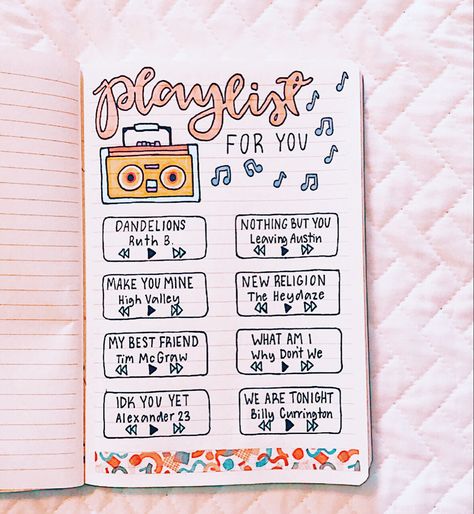 playlist
FOR YOU
DANDELIONS
Ruth B.
NOTHING BUT YOU
Leaving Austin
MAKE YOU MINE
High Valley
NEW RELIGION
The Heydaze
MY BEST FRIEND
Tim McGraw
WHAT AM I
Why Don't We
IDK YOU YET
Alexander 23
WE ARE TONIGHT
Billy Currington